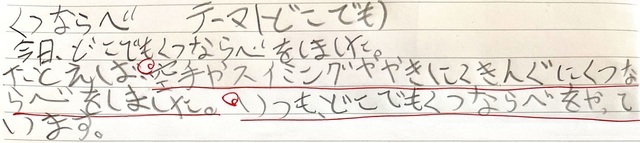 くつならべ テーマ(どこでも)
今日、どこでもくつならべをしました。
たとえば、空手やスイミングややきにくきんぐにくつな
らべをしました。いつも、どこでもくつならべをやって
います。